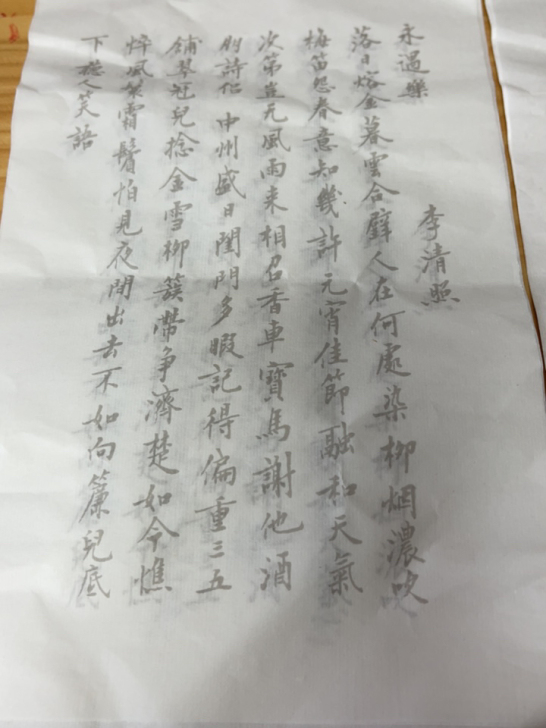 永遇樂
李清照
落日熔金暮雲合壁人在何處染柳烟濃吹
梅笛怨春意知幾許元宵佳節融和天氣
次第豈无風雨来相召香車寶馬謝他酒
朋詩侣 中州盛日閨門多暇記得偏重三五
鋪翠冠兒捻金雪柳簇帶争濟楚如今憔
悴風鬟霜鬢怕見夜間出去不如向簾兒底
下聽人笑語